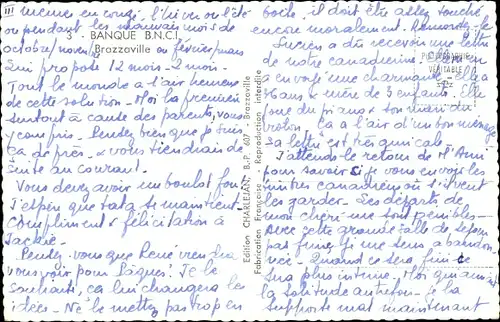 III même en congé, l'hiver ou l'été
ou pendant les derniers mois de
BANQUE B.N.C.I.
octobre/novem
Brazzaville
ou février/mars
Lui propose 12 mois - 2 mois.
Tout le monde a l'air
de cette solution - Moi la première
surtout à cause des parents, vous
y compris. Pensez bien que je suis
ça de près - & vous tiendrais de
suite au courant.
Vous devez avoir un boulot fou
J'espère que tata se maintient.
Compliments & félicitation à
Pensez-vous que René viendra
vous voir pour Pâques! Je le
souhaite, ça lui changera les
idées - Ne le mettez pas trop en
Edition CHARLEJAN, B. P. 607 - Brazzaville
Fabrication Française - Reproduction interdite
PHOTOGRAPHIE
VÉRITABLE
boîte, il doit être assez touché
encore moralement - Remontez-le
Lucien a dû recevoir une lettre
de notre canadienne
en voyé une charmante - Elle a
36 ans & mère de 3 enfants. Elle
joue du piano & son mari du
violon. Ça a l'air d'un bon ménage
sa lettre est très amicale.
J'attends le retour de M. Ami
pour savoir si je vous envoie les
timbres canadiens ou s'il vient
les garder - Les départs de
mon chéri me sont pénibles -
Avec cette grande salle de séjour
pas finie je me sens abandon
née - Quand ce sera fini ce
sera plus intime - Moi qui aimais
la solitude autrefois - je la
supporte mal maintenant